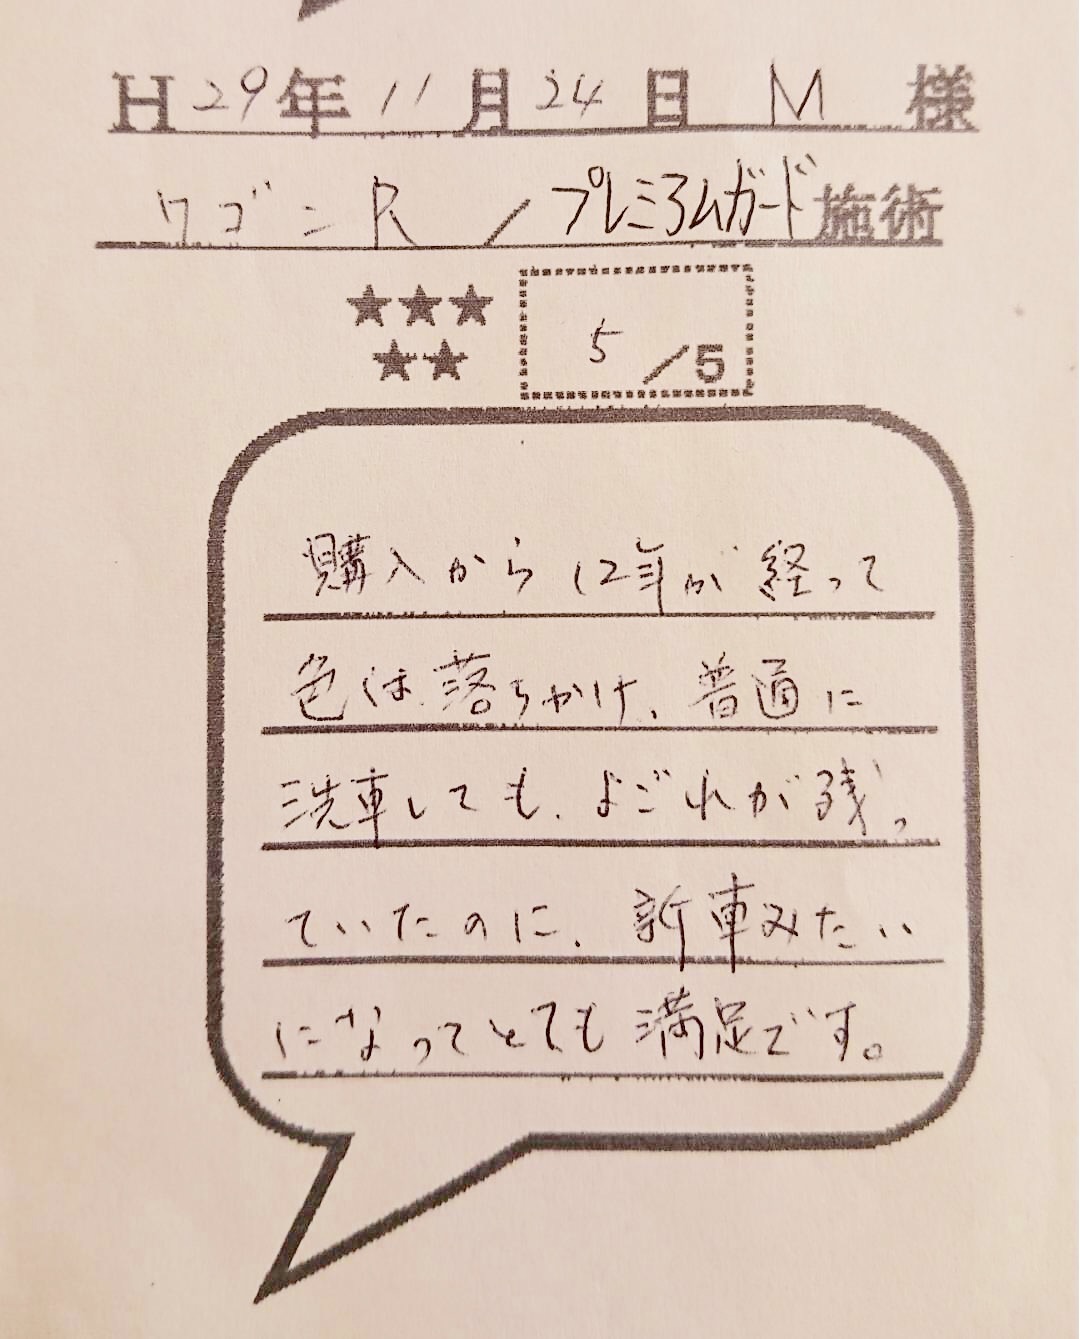 H29年11月24日 M 様
ワゴンR/プレミアムガード施術
★★★
★★
5/5
購入から12年が経って
色は落ちかけ、普通に
洗車しても、よごれが残っ
ていたのに、新車みたい
になってとても満足です。